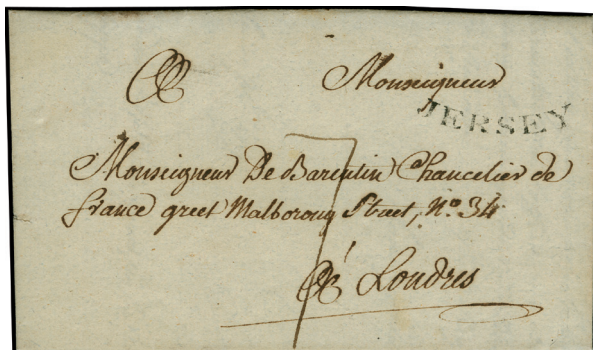 A Monseigneur
JERSEY
Monseigneur De Barentin Chancelier de
france greet Malboroug Street, N.o 34
7
À Londres